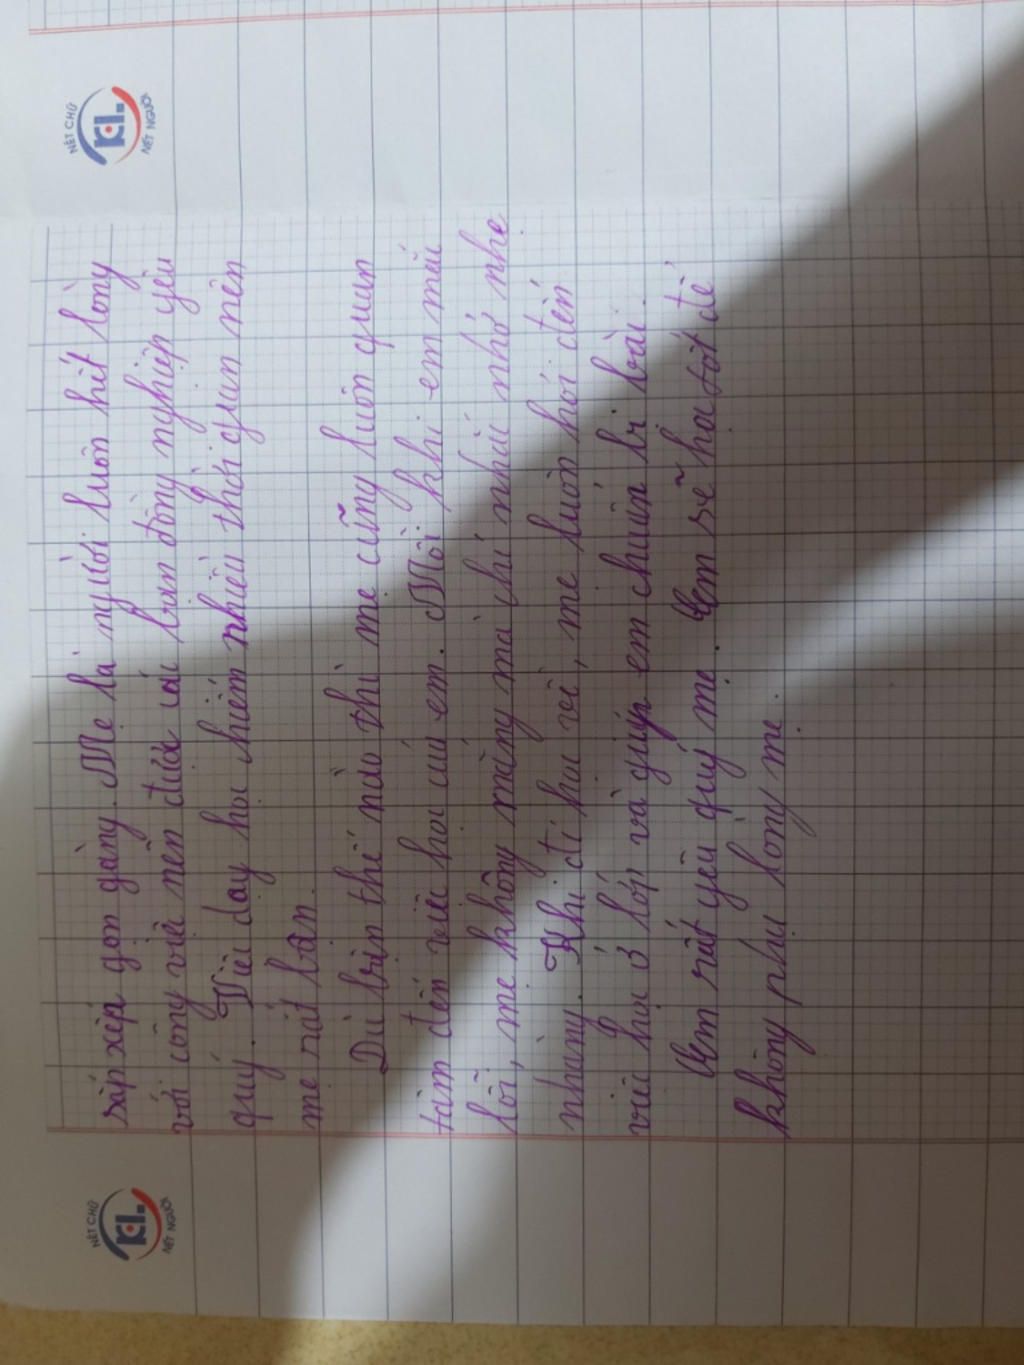 NÉT CHỮ
KL.
NẾT NGƯỜI
NÉT CHỮ
KL.
NẾT NGƯỜI
sắp xếp gọn gàng. Mẹ là người luôn hết lòng
với công việc nên được các bạn đồng nghiệp yêu
quý. Việc dạy học chiếm nhiều thời gian nên
mẹ rất bận
Dù bận thế nào thì mẹ cũng luôn quan
tâm đến việc học của em. Mỗi khi em mắc
lỗi, mẹ không mắng mà chỉ nhắc nhở nhẹ
nhàng. Khi đi học về, mẹ luôn hỏi đến
việc học ở lớp và giúp em chuẩn bị bài.
Em rất yêu quý mẹ. Em sẽ học tốt để
không phụ lòng mẹ.